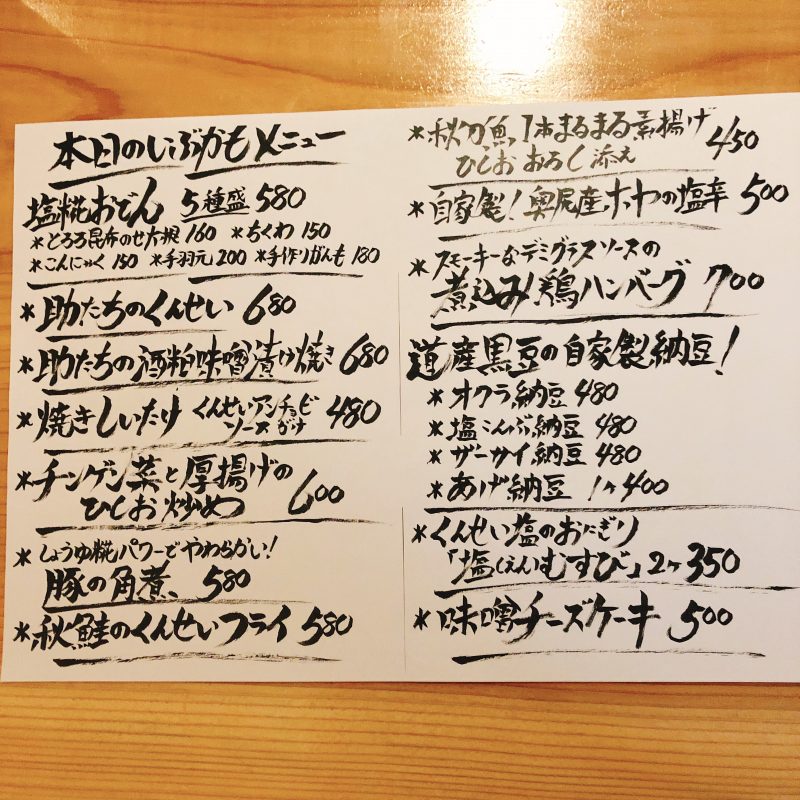 本日のいぶかもメニュー
塩糀おでん 5種盛 580
*とろろ昆布のせ大根 160 *ちくわ 150
*こんにゃく 150 *手羽元 200 *手作りがんも 180
*助たちのくんせい 680
*助たちの酒粕味噌漬け焼き 680
*焼きしいたけ くんせいアンチョビ
ソースがけ 480
*チンゲン菜と厚揚げの
ひしお炒め 600
*しょうゆ糀パワーでやわらかい!
豚の角煮、580
*秋鮭のくんせいフライ 580
*秋刀魚1本まるまる素揚げ
ひしおおろし添え 450
*自家製!奥尻産ホヤの塩辛 500
*スモーキーなデミグラスソースの
煮込み鶏ハンバーグ 700
道産黒豆の自家製納豆!
*オクラ納豆 480
*塩こんぶ納豆 480
*ザーサイ納豆 480
*あげ納豆 1ヶ400
*くんせい塩のおにぎり
「塩(えん)むすび」2ヶ350
*味噌チーズケーキ 500